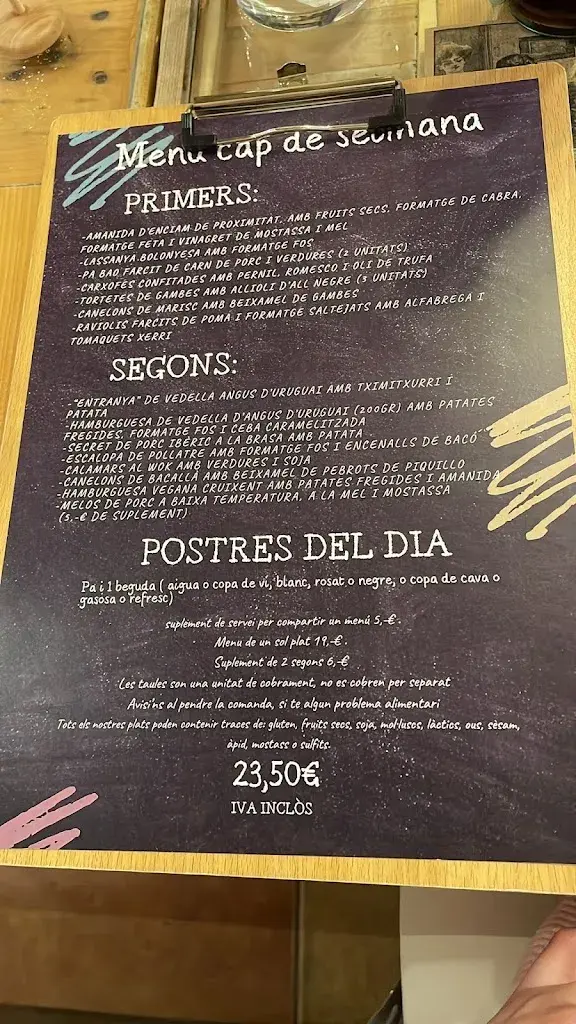 Menú cap de setmana
PRIMERS:
-AMANIDA D'ENCIAM DE PROXIMITAT, AMB FRUITS SECS, FORMATGE DE CABRA,
FORMATGE FETA I VINAGRET DE MOSTASSA I MEL
-LASSANYA BOLONYESA AMB FORMATGE FOS
-PA BAO FARCIT DE CARN DE PORC I VERDURES (2 UNITATS)
-CARXOFES CONFITADES AMB PERNIL, ROMESCO I OLI DE TRUFA
-TORTETES DE GAMBES AMB ALLIOLI D'ALL NEGRE (3 UNITATS)
-CANELONS DE MARISC AMB BEIXAMEL DE GAMBES
-RAVIOLIS FARCITS DE POMA I FORMATGE SALTEJATS AMB ALFABREGA I
TOMAQUETS XERRI
SEGONS:
-"ENTRANYA" DE VEDELLA ANGUS D'URUGUAI AMB TXIMITXURRI I
PATATA
-HAMBURGUESA DE VEDELLA D'ANGUS D'URUGUAI (200GR) AMB PATATES
FREGIDES, FORMATGE FOS I CEBA CARAMELITZADA
-SECRET DE PORC IBÈRIC A LA BRASA AMB PATATA
-ESCALOPA DE POLLATRE AMB FORMATGE FOS I ENCENALLS DE BACÓ
-CALAMARS AL WOK AMB VERDURES I SOJA
-CANELONS DE BACALLÀ AMB BEIXAMEL DE PEBROTS DE PIQUILLO
-HAMBURGUESA VEGANA CRUIXENT AMB PATATES FREGIDES I AMANIDA
-MELOS DE PORC A BAIXA TEMPERATURA, A LA MEL I MOSTASSA
(3,-€ DE SUPLEMENT)
POSTRES DEL DIA
Pa i 1 beguda ( aigua o copa de vi, blanc, rosat o negre, o copa de cava o
gasosa o refresc)
suplement de servei per compartir un menú 5,-€.
Menu de un sol plat 19,-€.
Suplement de 2 segons 6,-€
Les taules son una unitat de cobrament, no es cobren per separat
Avisi'ns al pendre la comanda, si te algun problema alimentari
Tots els nostres plats poden contenir traces de: gluten, fruits secs, soja, mol·lusos, làctics, ous, sèsam,
àpid, mostass o sulfits.
23,50€
IVA INCLÒS